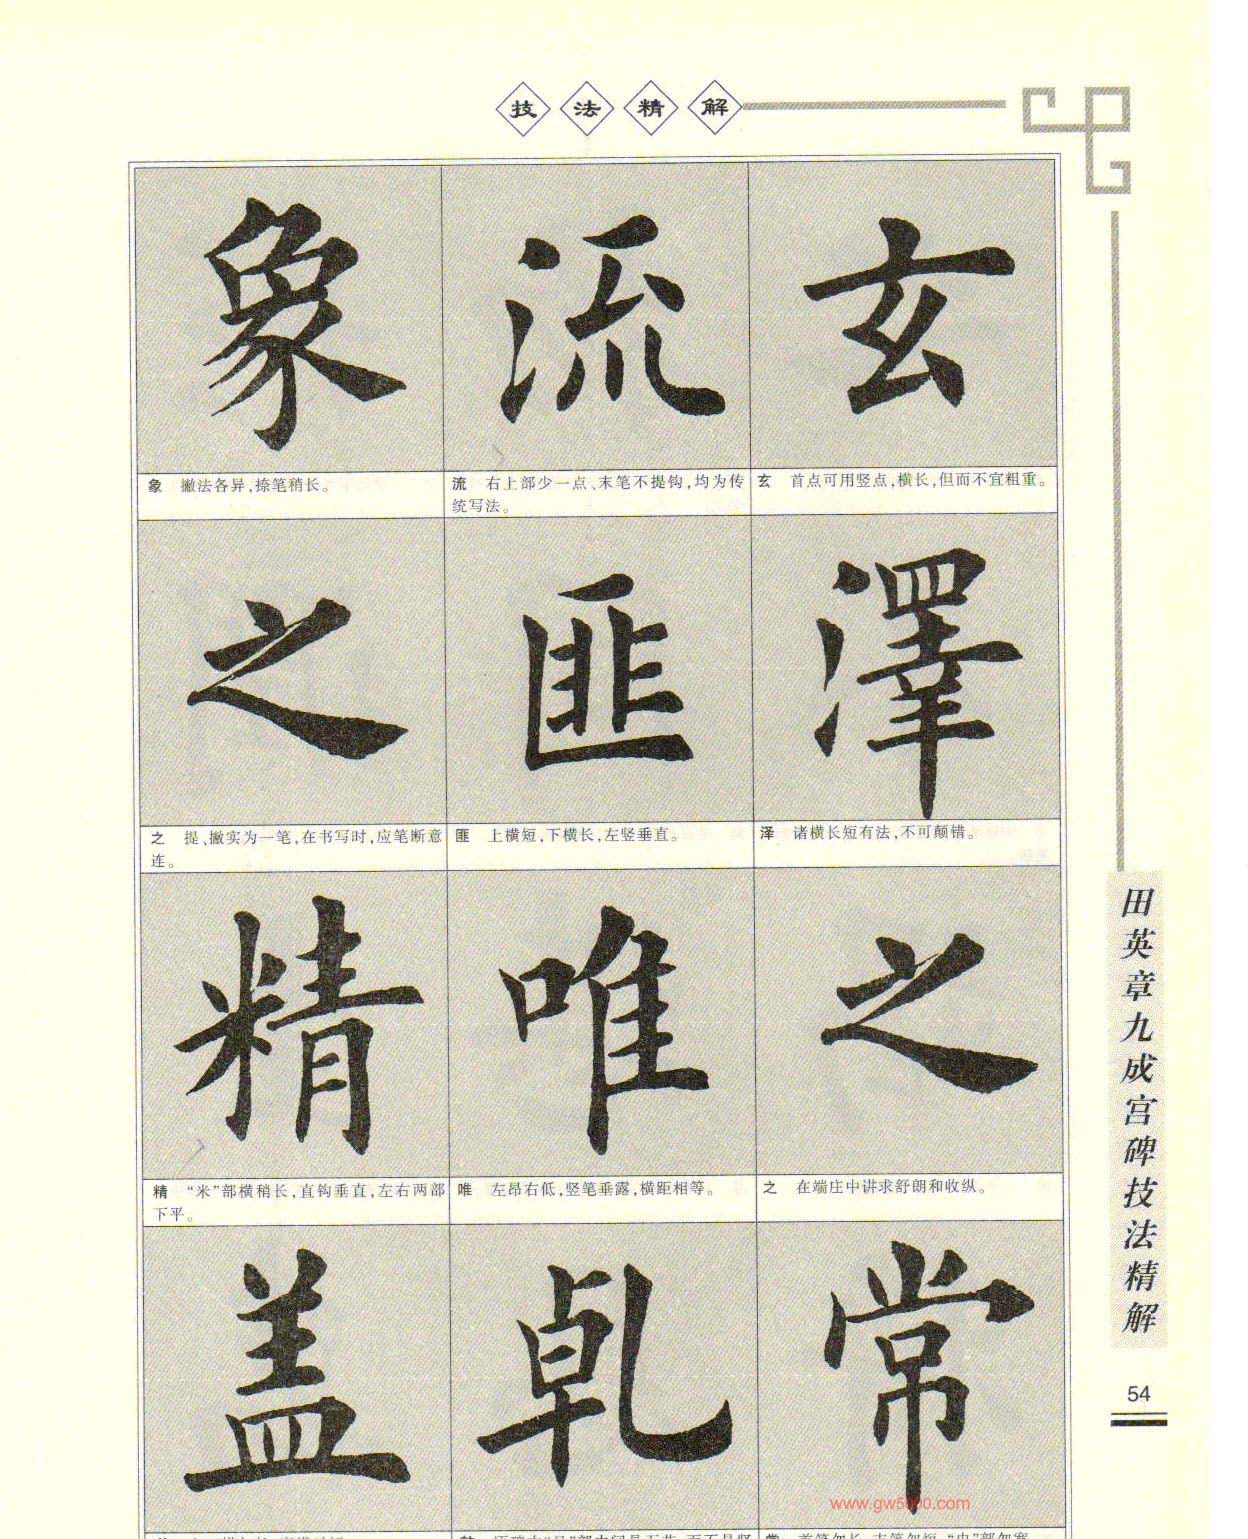 技法精解
象 流 玄
象 撇法各异,捺笔稍长。
流 右上部少一点、末笔不提钩,均为传
统写法。
玄 首点可用竖点,横长,但而不宜粗重。
之 匪 澤
之 提、撇实为一笔,在书写时,应笔断意
连。
匪 上横短,下横长,左竖垂直。
泽 诸横长短有法,不可颠错。
精 唯 之
精 “米”部横稍长,直钩垂直,左右两部
下平。
唯 左昂右低,竖笔垂露,横距相等。
之 在端庄中讲求舒朗和收纵。
盖 乹 常
www.gw5000.com
田英章九成宫碑技法精解
54